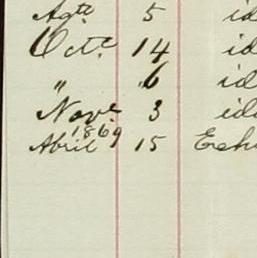 Agto 5 id
Octe 14 id
" 6 id
Nove 3 id
1869
Abril 15